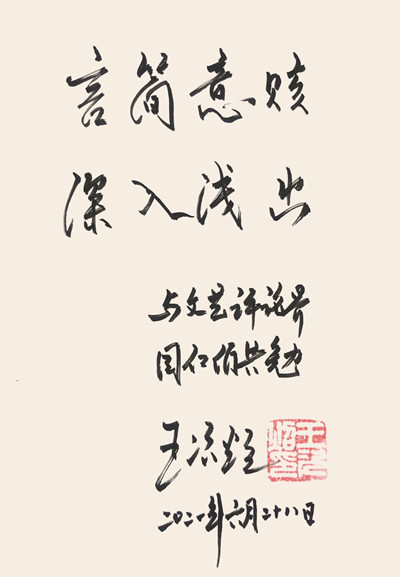 言简意赅
深入浅出
与文艺评论界
同仁们共勉
王次炤
二〇二一年六月二十八日